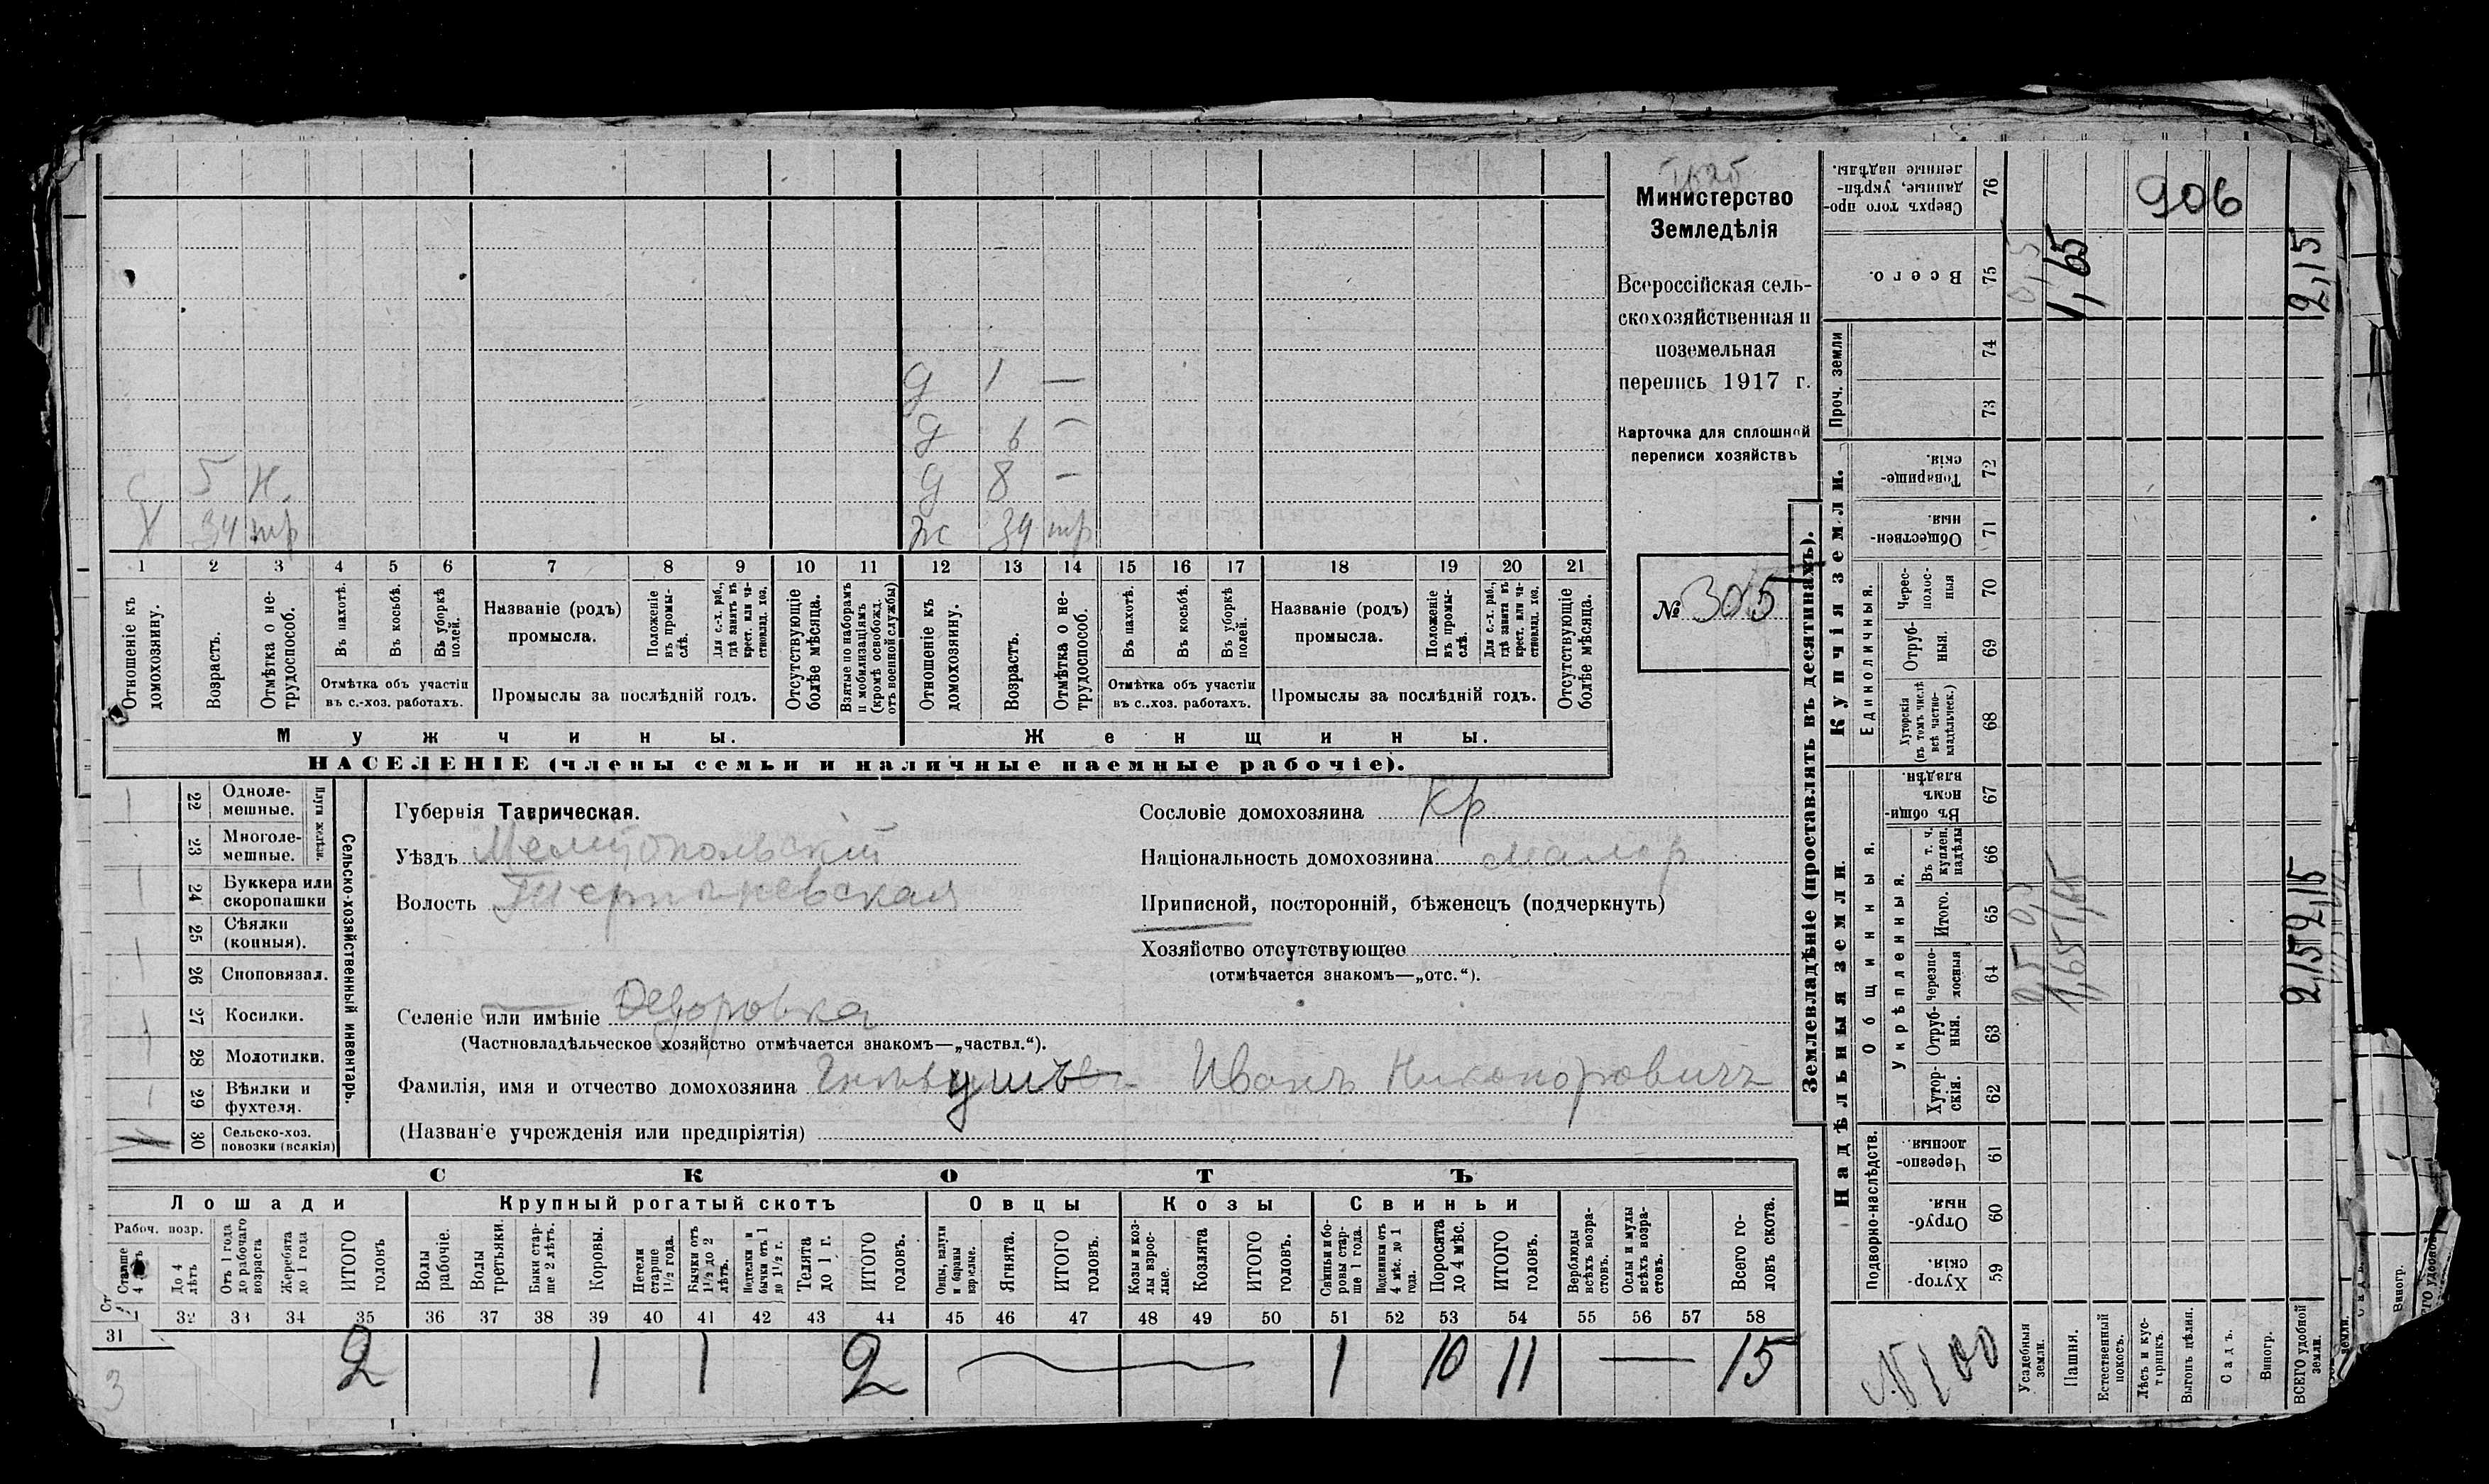 Министерство
Земледѣлія
Всероссійская сель-
скохозяйственная и
поземельная
перепись 1917 г.
Карточка для сплошной
переписи хозяйствъ
№ 305
906
д 1 —
д 6 —
с 5 н. д 8 —
Х 34 тр ж 34 тр
1 2 3 4 5 6 7 8 9 10 11 12 13 14 15 16 17 18 19 20 21
Отношеніе къ домохозяину.
Возрастъ.
Отмѣтка о не-трудоспособ.
Въ пахотѣ.
Въ косьбѣ.
Въ уборкѣ полей.
Отмѣтка объ участіи
въ с.-хоз. работахъ.
Названіе (родъ)
промысла.
Положеніе въ промы-слѣ.
Для с.-х. раб., гдѣ занятъ въ крест. или ча-стновлад. хоз.
Промыслы за послѣдній годъ.
Отсутствующіе болѣе мѣсяца.
Взятые по наборамъ и мобилизаціямъ (кромѣ освобожд. отъ военной службы)
Отношеніе къ домохозяину.
Возрастъ.
Отмѣтка о не-трудоспособ.
Въ пахотѣ.
Въ косьбѣ.
Въ уборкѣ полей.
Отмѣтка объ участіи
въ с.-хоз. работахъ.
Названіе (родъ)
промысла.
Положеніе въ промы-слѣ.
Для с.-х. раб., гдѣ занята въ крест. или ча-стновлад. хоз.
Промыслы за послѣдній годъ.
Отсутствующіе болѣе мѣсяца.
Мужчины. Женщины.
НАСЕЛЕНІЕ (члены семьи и наличные наемные рабочіе).
Сельско-хозяйственный инвентарь.
Плуги желѣзн.
22 Одноле-мешные.
23 Многоле-мешные.
24 Буккера или скоропашки
25 Сѣялки (конныя).
26 Сноповязал.
27 Косилки.
28 Молотилки.
29 Вѣялки и фухтеля.
30 Сельско-хоз. повозки (всякія)
Губернія Таврическая.
Уѣздъ Мелитопольскій
Волость
Селеніе или имѣніе Федоровка
(Частновладѣльческое хозяйство отмѣчается знакомъ—„частвл.“).
Фамилія, имя и отчество домохозяина Иванъ Никоноровичъ
(Названіе учрежденія или предпріятія)
Сословіе домохозяина кр
Національность домохозяина малор
Приписной, посторонній, бѣженецъ (подчеркнуть)
Хозяйство отсутствующее
(отмѣчается знакомъ—„отс.“).
СКОТЪ
Лошади Крупный рогатый скотъ Овцы Козы Свиньи
Рабоч. возр.
Старше 4
До 4 лѣтъ
Отъ 1 года до рабочаго возраста
Жеребята до 1 года
ИТОГО головъ
Волы рабочіе.
Волы третьяки.
Быки стар-ше 2 лѣтъ.
Коровы.
Нетели старше 1 1/2 года.
Бычки отъ 1 1/2 до 2 лѣтъ.
Подтелки и бычки отъ 1 до 1 1/2 г.
Телята до 1 г.
ИТОГО головъ.
Овцы, валухи и бараны взрослые.
Ягнята.
ИТОГО головъ.
Козы и коз-лы взрос-лые.
Козлята
ИТОГО головъ.
Свиньи и бо-ровы стар-ше 1 года.
Подсвинки отъ 4 мѣс. до 1 года.
Поросята до 4 мѣс.
ИТОГО головъ.
Верблюды всѣхъ возра-стовъ.
Ослы и мулы всѣхъ возра-стовъ.
Всего го-ловъ скота.
31 32 33 34 35 36 37 38 39 40 41 42 43 44 45 46 47 48 49 50 51 52 53 54 55 56 57 58
3 2 1 1 2 — 1 10 11 — 15
Землевладѣніе (проставлять въ десятинахъ).
Надѣльныя земли. Купчія земли. Проч. земли
Подворно-наслѣдств.
Общинныя.
Укрѣпленныя.
Единоличныя.
59 Хутор-скія.
60 Отруб-ныя.
61 Черезпо-лосныя.
62 Хутор-скія.
63 Отруб-ныя.
64 Черезпо-лосныя
65 Итого.
66 Въ т. ч. куплен. надѣлы
67 Въ общи-номъ владѣн.
68 Хуторскія (въ томъ числѣ всѣ частно-владѣльческ.)
69 Отруб-ныя.
70 Черес-полос-ныя
71 Обществен-ныя.
72 Товарище-скія.
73
74
75 Всего.
76 Сверхъ того про-данные, укрѣп-ленные надѣлы.
Усадебныя земли.
Пашня. 1,65 1,65 1,65
Естественный покосъ.
Лѣсъ и кус-тарникъ.
Выгонъ цѣлин.
Садъ.
Виногр.
ВСЕГО удобной земли. 2,15 2,15 2,15
№ 100